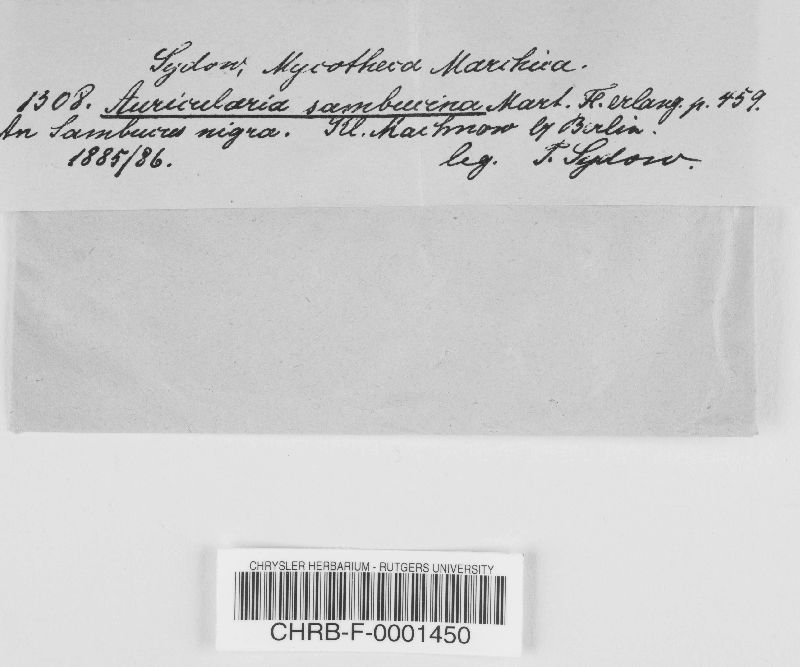 Sydow, Mycotheca Marchica.
1308. Auricularia sambucina Mart. Fl. erlang. p. 459.
An Sambucus nigra. Kl. Machnow b/ Berlin.
1885/86. leg. P. Sydow.
CHRYSLER HERBARIUM - RUTGERS UNIVERSITY
CHRB-F-0001450